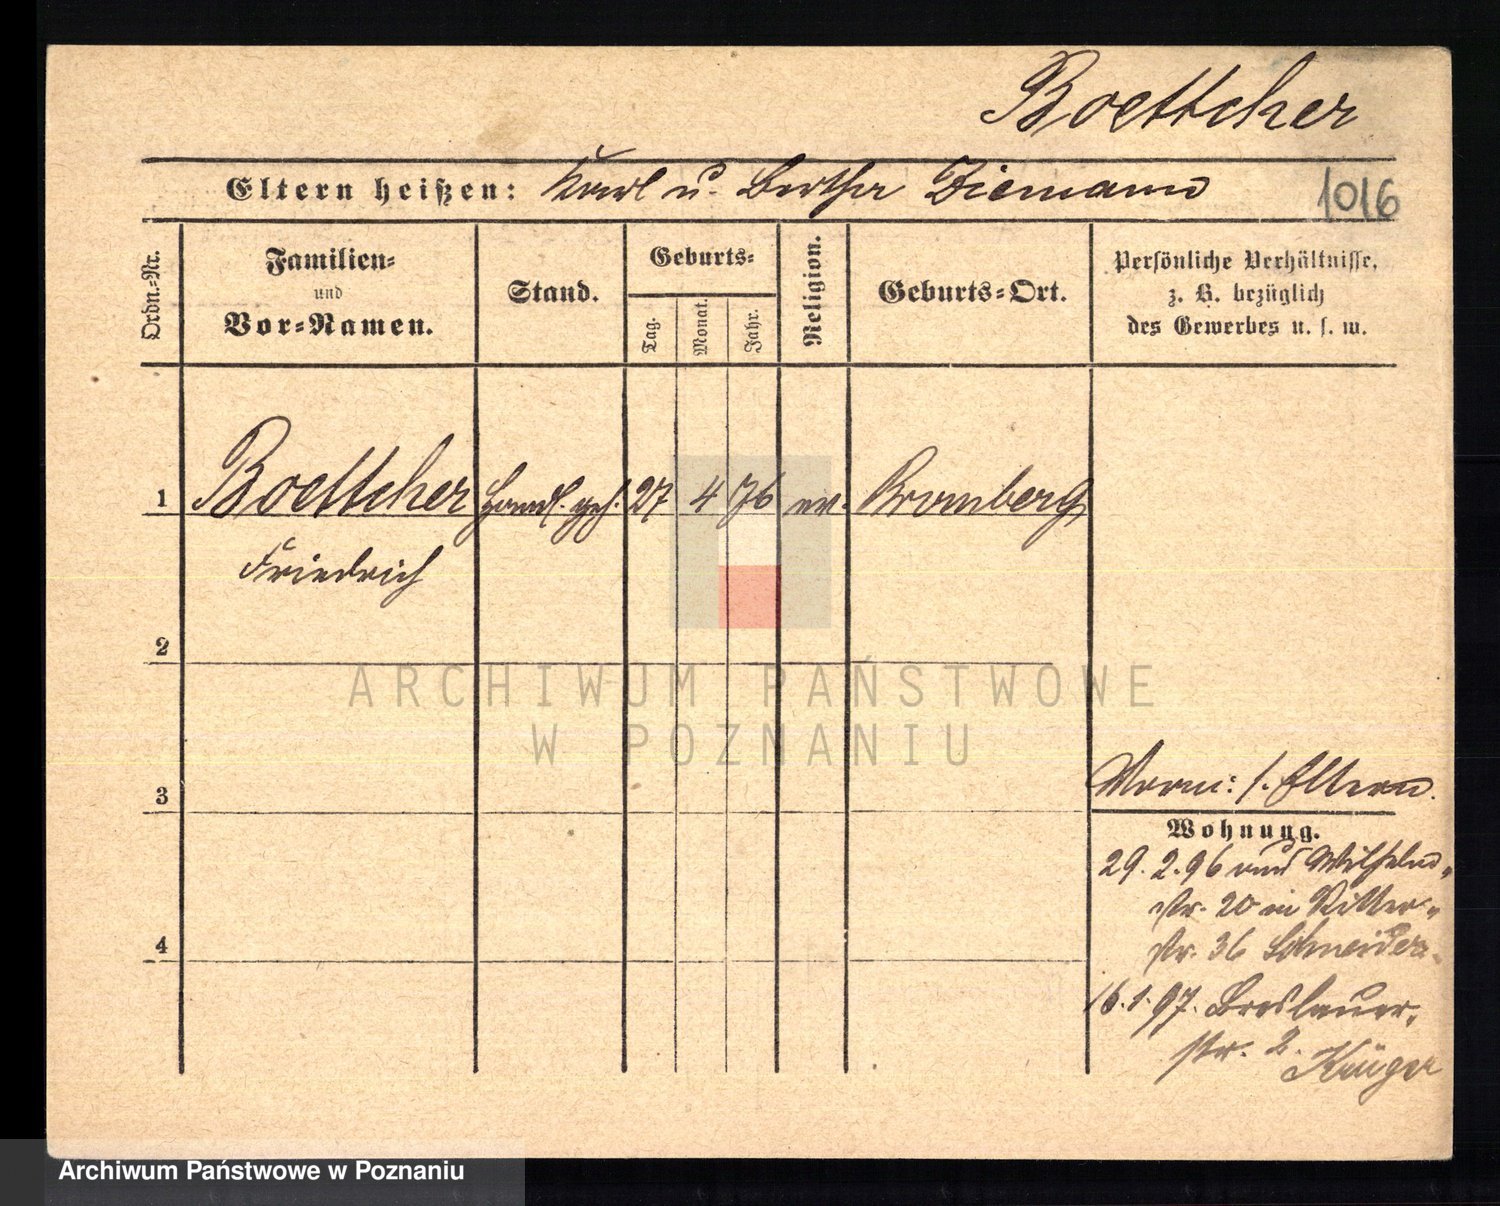 Boettcher
Eltern heißen: Karl u. Bertha Ziemann
1016
Ordn.-Nr.
Familien-
und
Vor-Namen.
Stand.
Geburts-
Tag.
Monat.
Jahr.
Religion.
Geburts-Ort.
Persönliche Verhältnisse,
z. B. bezüglich
des Gewerbes u. s. w.
1 Boettcher Handl. geh. 27 4 76 ev. Bromberg
Friedrich
2
3
4
ARCHIWUM PAŃSTWOWE
W POZNANIU
Vorm: s. Eltern.
Wohnung.
29. 2. 96 aus Wilhelm-
str. 20 in Ritter-
str. 36 Schneider.
16. 1. 97. Breslauer-
str. 2. Krüger
Archiwum Państwowe w Poznaniu